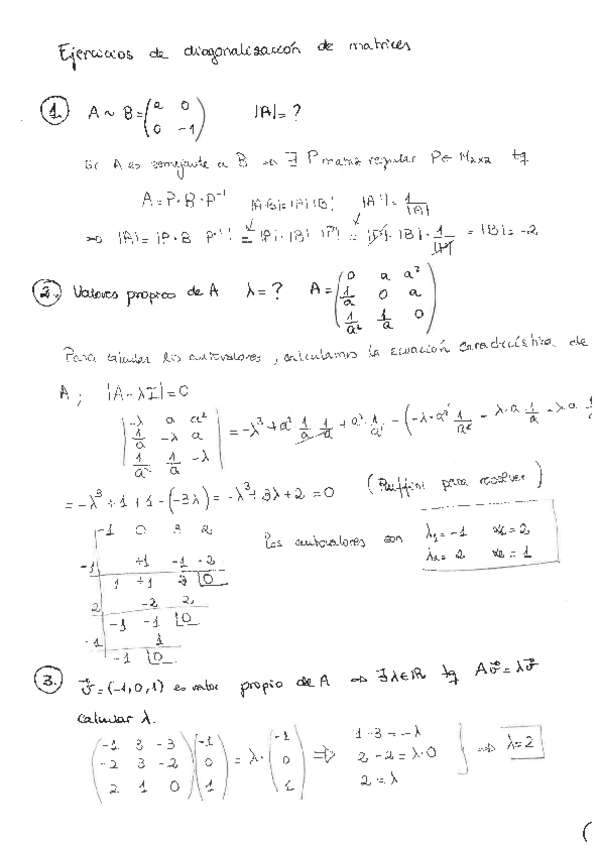 Ejercicios de diagonalización de matrices
1. A ~ B = (2 0 |A| = ?
0 -1)
Si A es semejante a B ⇒ ∃ P matriz regular P ∈ M2x2 tq
A = P · B · P⁻¹ |A·B| = |A|·|B| |A⁻¹| = 1/|A|
⇒ |A| = |P · B · P⁻¹| = |P| · |B| · |P⁻¹| = |P| · |B| · 1/|P| = |B| = -2
2. Valores propios de A λ = ? A = (0 a a²
1/a 0 a
1/a² 1/a 0)
Para calcular los autovalores, calculamos la ecuación característica de
A; |A - λI| = 0
|-λ a a²
1/a -λ a
1/a² 1/a -λ| = -λ³ + a² 1/a 1/a + a² · 1/a² - (-λ · a² 1/a² - λ · a 1/a - λ a 1/a
= -λ³ + 1 + 1 - (-3λ) = -λ³ + 3λ + 2 = 0 (Ruffini para resolver)
-1 0 3 2
-1 +1 -1 -2
1 +1 2 0
2 -2 2
-1 -1 0
-1 1
-1 0
Los autovalores son λ₁ = -1 α₁ = 2
λ₂ = 2 α₂ = 1
3. v = (-1, 0, 1) es vector propio de A ⇒ ∃ λ ∈ R tq Av = λv
Calcular λ.
(-1 3 -3)(-1) = λ · (-1) ⇒ 1 - 3 = -λ
(-2 3 -2)(0) (0) 2 - 2 = λ · 0 ⇒ λ = 2
(2 1 0)(1) (1) 2 = λ